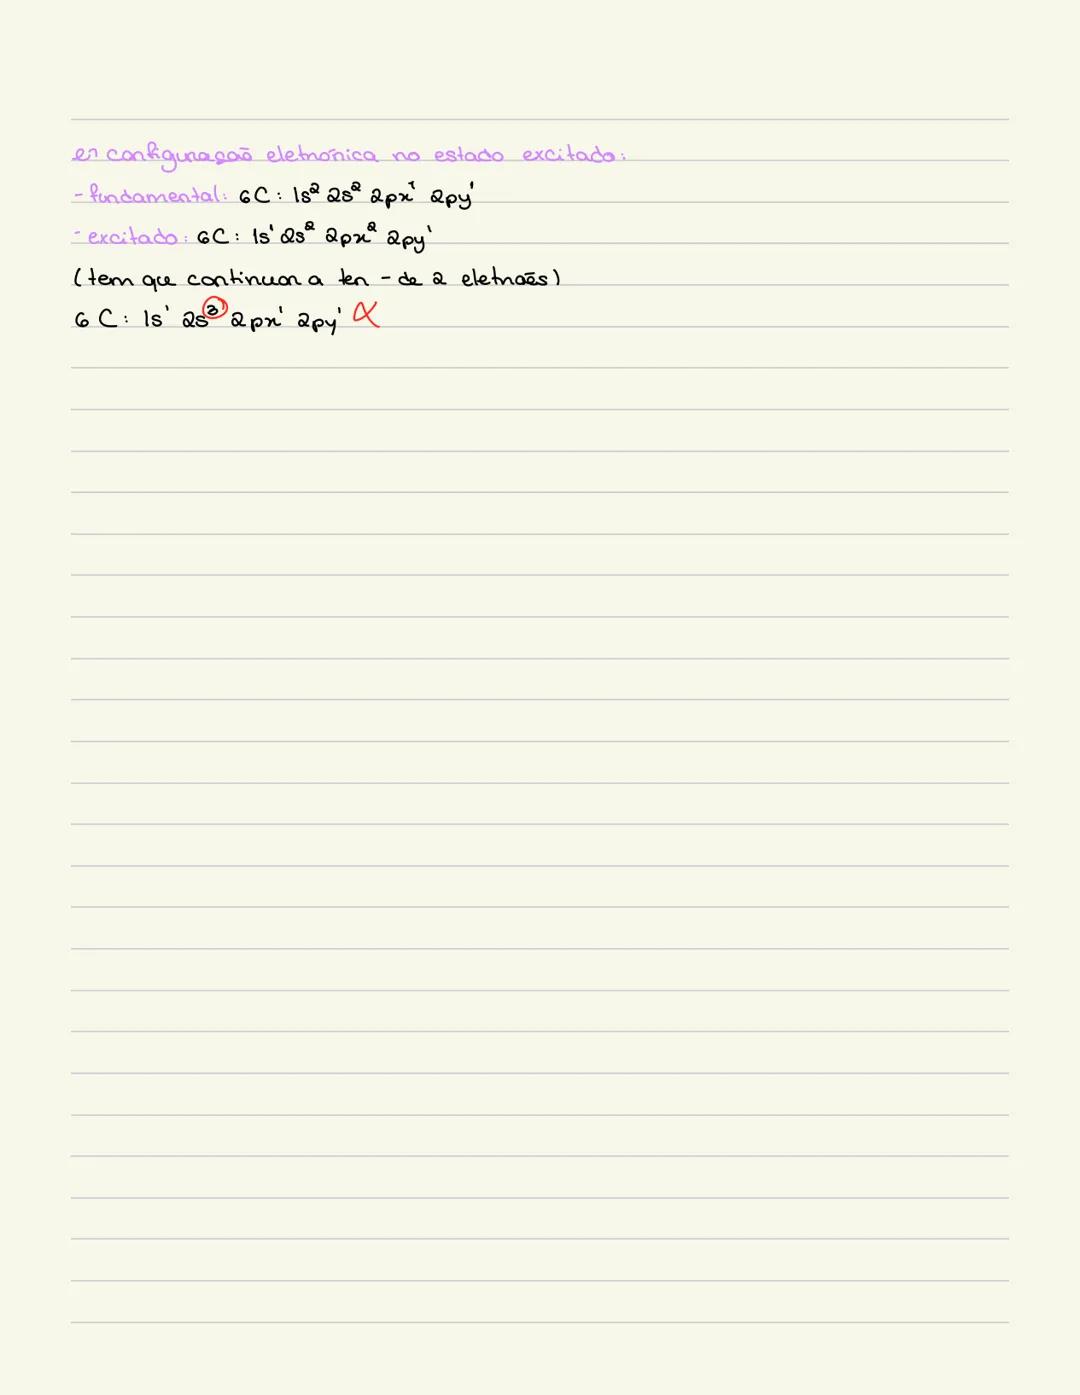 ↳ configuração eletrónica no estado excitado:
- fundamental: 6C: 1s² 2s² 2px¹ 2py¹
- excitado: 6C: 1s¹ 2s² 2px² 2py¹
(tem que continuar a ter - de 2 eletrões)
6C: 1s¹ 2s³ 2px¹ 2py¹ X